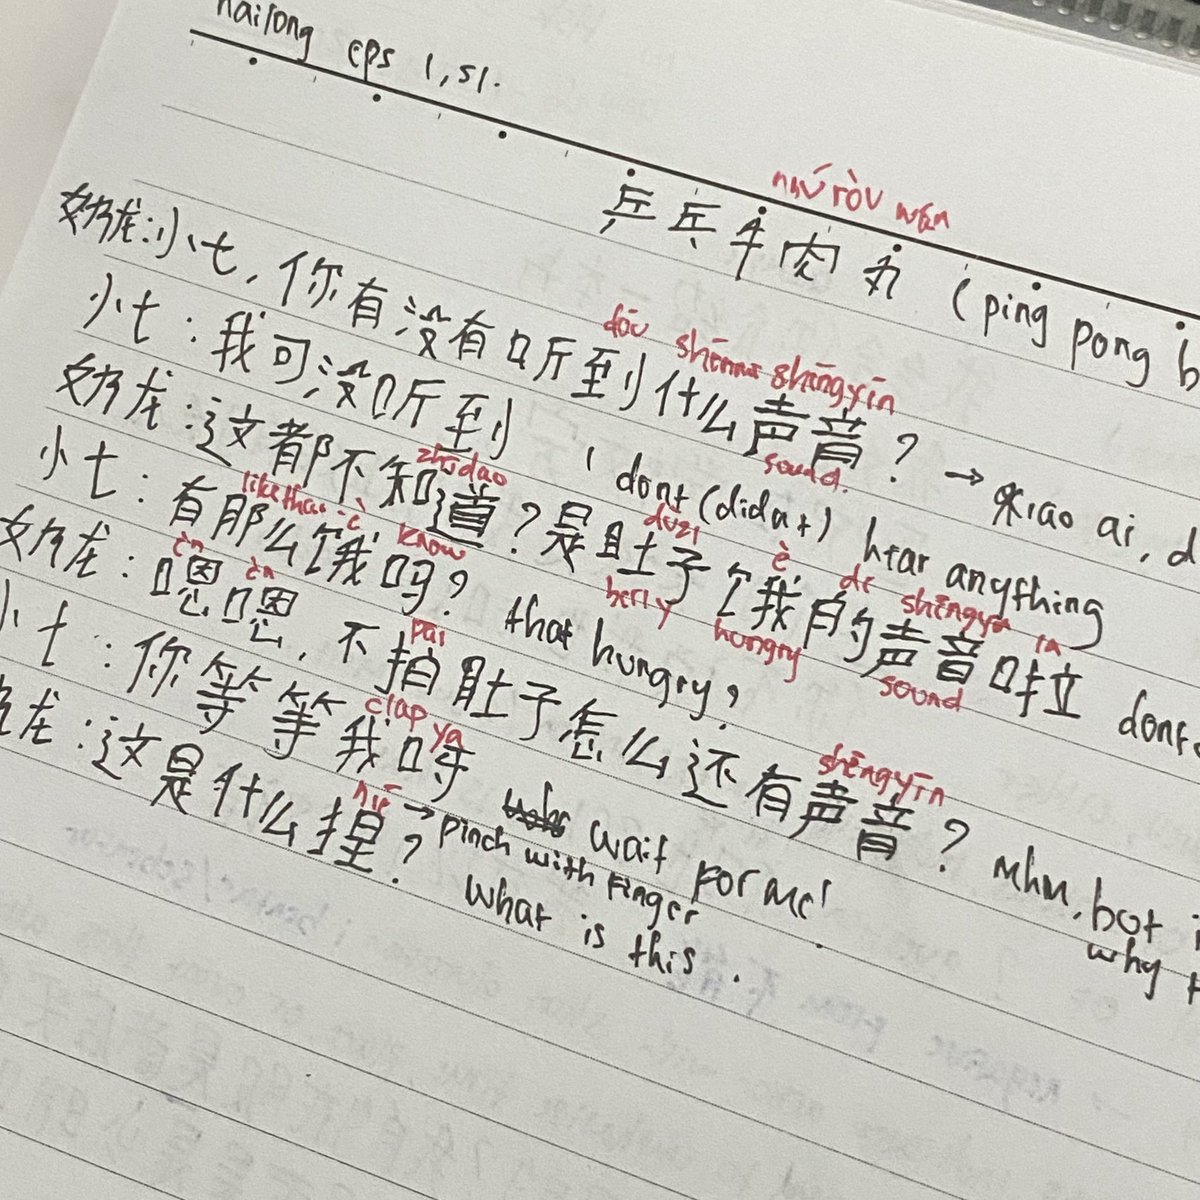 nailong eps 1, s1.
niú ròu wán
乒乓牛肉丸 (ping pong b
奶龙:小七,你有没有听到什么声音? → xiao ai, d
dōu shénme shēngyīn
sound.
小七:我可没听到 I dont (didnt) hear anything
奶龙:这都不知道?是肚子饿我的声音啦 dont
zhīdao dùzi è de shēngyīn la
know belly hungry sound
小七:有那么饿吗? that hungry?
like that è
奶龙:嗯嗯,不拍肚子怎么还有声音? Mhm, but i
èn èn pāi shēngyīn
clap why
小七:你等等我呀 wait for me!
ya
奶龙:这是什么捏?
niē → pinch with finger
what is this.